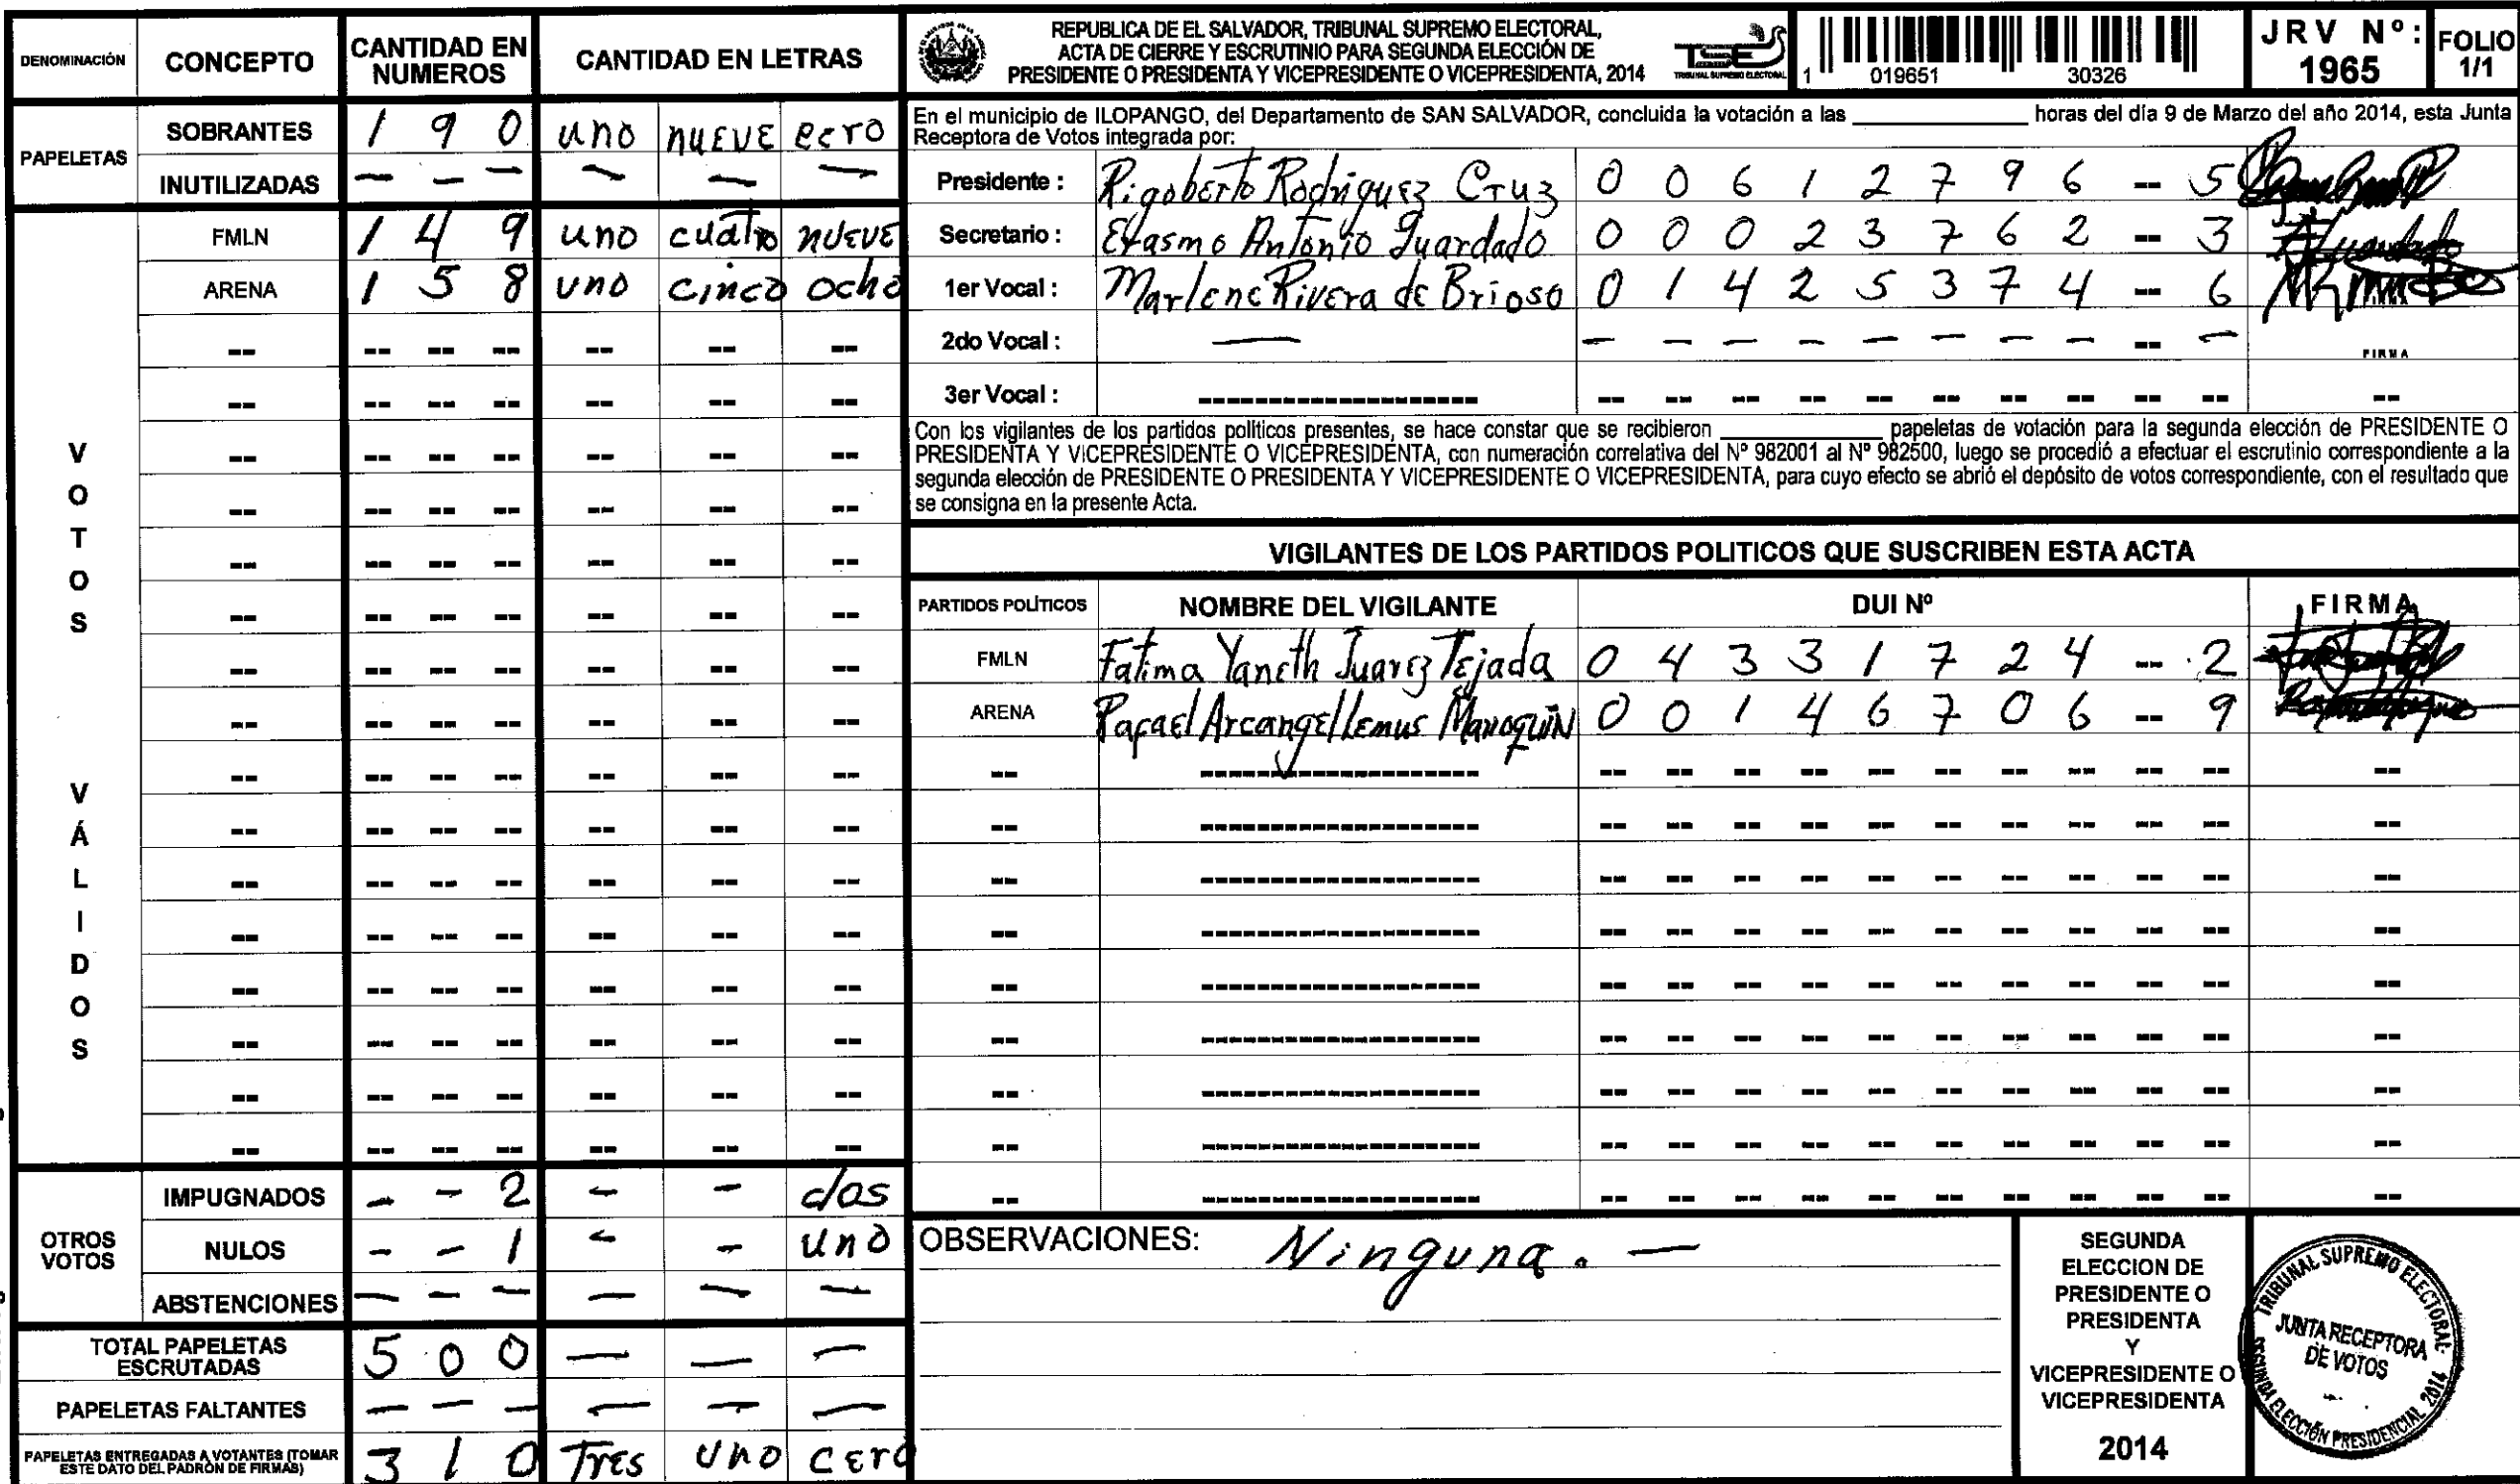 DENOMINACIÓN CONCEPTO CANTIDAD EN NUMEROS CANTIDAD EN LETRAS
PAPELETAS
SOBRANTES 1 9 0 uno nueve cero
INUTILIZADAS — — — — — —
VOTOS VÁLIDOS
FMLN 1 4 9 uno cuatro nueve
ARENA 1 5 8 uno cinco ocho
OTROS VOTOS
IMPUGNADOS - - 2 - - dos
NULOS - - 1 - - uno
ABSTENCIONES — — — — — —
TOTAL PAPELETAS ESCRUTADAS 5 0 0 — — —
PAPELETAS FALTANTES — — — — — —
PAPELETAS ENTREGADAS A VOTANTES (TOMAR ESTE DATO DEL PADRÓN DE FIRMAS) 3 1 0 Tres uno cero
REPUBLICA DE EL SALVADOR, TRIBUNAL SUPREMO ELECTORAL,
ACTA DE CIERRE Y ESCRUTINIO PARA SEGUNDA ELECCIÓN DE
PRESIDENTE O PRESIDENTA Y VICEPRESIDENTE O VICEPRESIDENTA, 2014
TSE
TRIBUNAL SUPREMO ELECTORAL
1 019651 30326
JRV Nº: 1965
FOLIO 1/1
En el municipio de ILOPANGO, del Departamento de SAN SALVADOR, concluida la votación a las ____________ horas del día 9 de Marzo del año 2014, esta Junta
Receptora de Votos integrada por:
Presidente : Rigoberto Rodriguez Cruz 0 0 6 1 2 7 9 6 -- 5
Secretario : Erasmo Antonio Guardado 0 0 0 2 3 7 6 2 -- 3
1er Vocal : Marlene Rivera de Brioso 0 1 4 2 5 3 7 4 -- 6
2do Vocal : — — — — — — — — — -- — FIRMA
3er Vocal : ------------------ -- -- -- -- -- -- -- -- -- -- --
Con los vigilantes de los partidos políticos presentes, se hace constar que se recibieron ____________ papeletas de votación para la segunda elección de PRESIDENTE O
PRESIDENTA Y VICEPRESIDENTE O VICEPRESIDENTA, con numeración correlativa del Nº 982001 al Nº 982500, luego se procedió a efectuar el escrutinio correspondiente a la
segunda elección de PRESIDENTE O PRESIDENTA Y VICEPRESIDENTE O VICEPRESIDENTA, para cuyo efecto se abrió el depósito de votos correspondiente, con el resultado que
se consigna en la presente Acta.
VIGILANTES DE LOS PARTIDOS POLITICOS QUE SUSCRIBEN ESTA ACTA
PARTIDOS POLÍTICOS NOMBRE DEL VIGILANTE DUI Nº FIRMA
FMLN Fatima Yaneth Juarez Tejada 0 4 3 3 1 7 2 4 -- 2
ARENA Rafael Arcangel Lemus Marroquin 0 0 1 4 6 7 0 6 -- 9
OBSERVACIONES: Ninguna. —
SEGUNDA
ELECCION DE
PRESIDENTE O
PRESIDENTA
Y
VICEPRESIDENTE O
VICEPRESIDENTA
2014
TRIBUNAL SUPREMO ELECTORAL
JUNTA RECEPTORA
DE VOTOS
SEGUNDA ELECCIÓN PRESIDENCIAL 2014